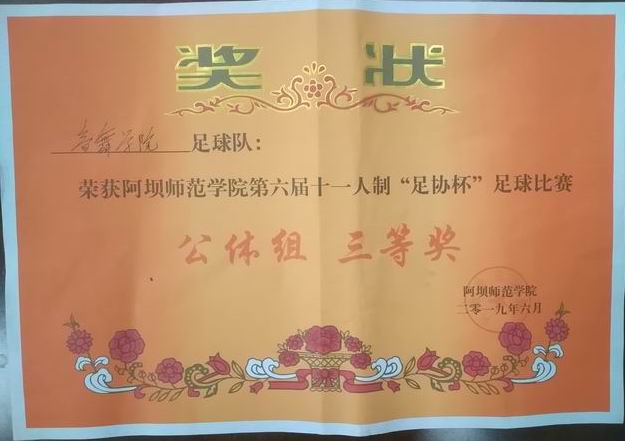 奖状
音舞学院 足球队：
荣获阿坝师范学院第六届十一人制“足协杯”足球比赛
公体组 三等奖
阿坝师范学院
二零一九年六月